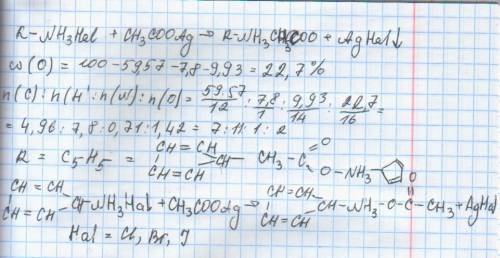 R-NH₃Hal + CH₃COOAg → R-NH₃CH₃COO + AgHal↓
ω(O) = 100-59,57-7,8-9,93 = 22,7%
n(C):n(H):n(N):n(O) = 59,57/12 : 7,8/1 : 9,93/14 : 22,7/16 =
= 4,96 : 7,8 : 0,71 : 1,42 = 7:11:1:2
R = C₅H₅ = CH=CH CH=CH CH- CH₃-C O O-NH₃
CH=CH CH=CH CH-NH₃Hal + CH₃COOAg → CH=CH CH=CH CH-NH₃-O-C-CH₃ + AgHal
O
Hal = Cl, Br, I